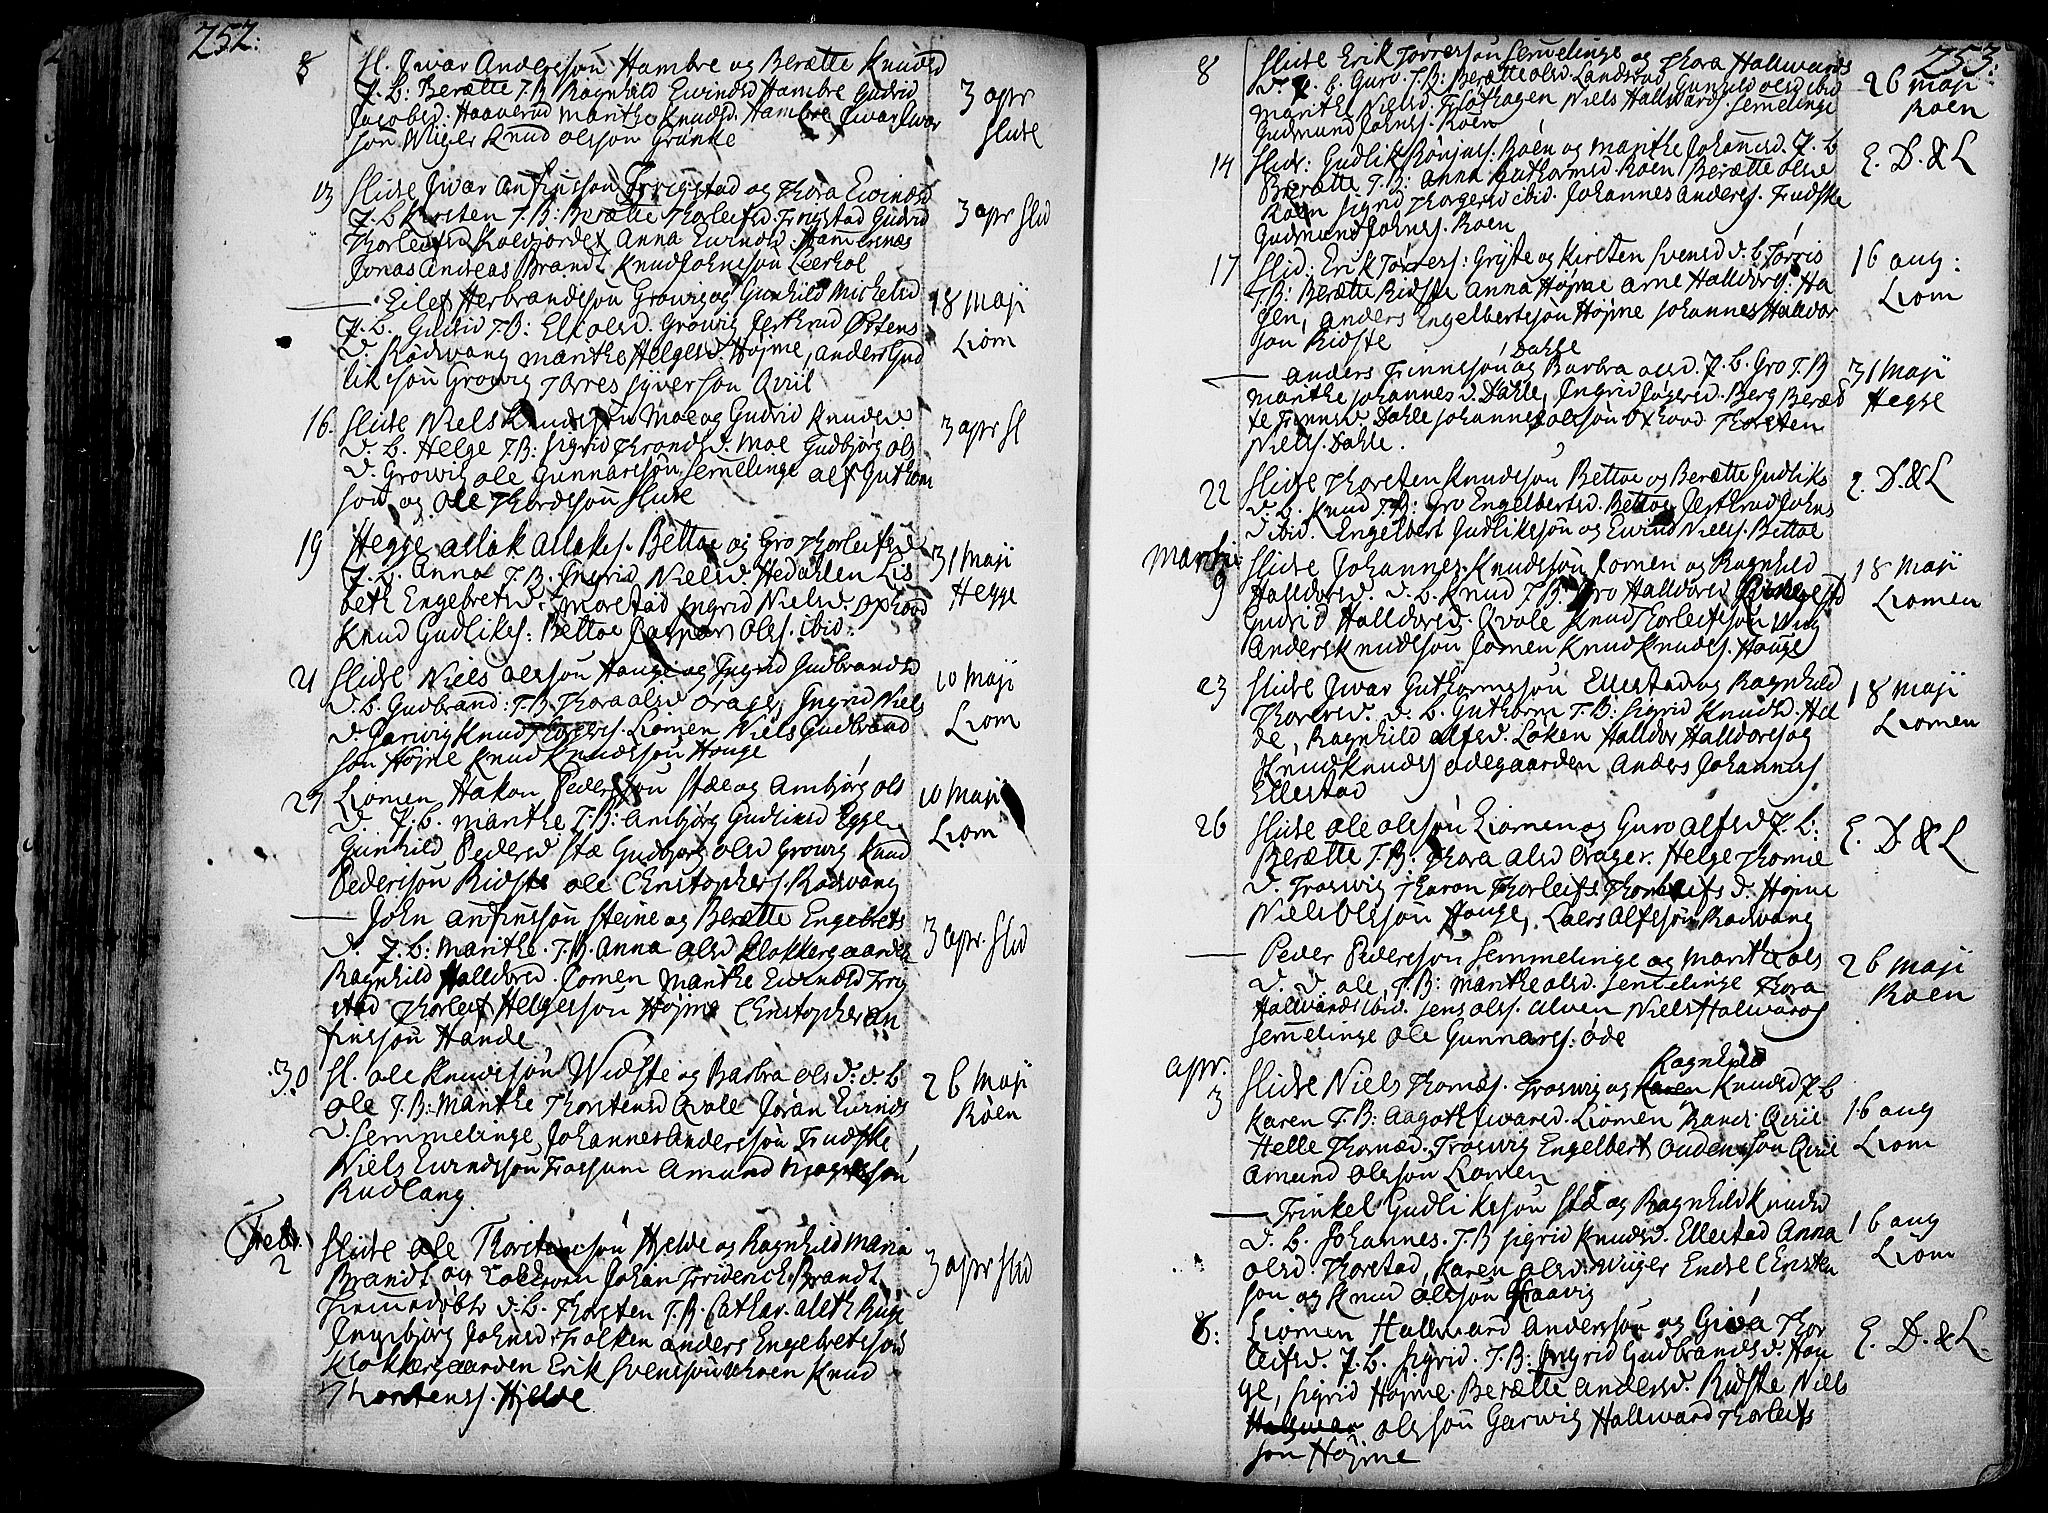 252:
8 Sl. Iwar Andersson Hambre og Berætte Knudsd
F. B: Berætte T.B Ragnhild Ewindsd Hambre Gudrid
Jacobsd. Haaverud Marithe Knudsd. Hambre Iwar Iwar
son Wiger Knud olsson Grønke
3 apr
Slide
13 Slidre Iwar Anfinsson Frigstad og Thora Ewindsd
F. B Kirsten T.B: Berætte Thorleifsd. Frigstad Gudrid
Thorleifsd Anna Ewindsd. Hammersnæs
Jonas Andreas Brandt Knud Johnsson Leerhol
3 apr Slid
— Eilef Herbrandsson Growig og Gunhild Michelsd
F. B. Gudrid T.B: Eli olsd. Growig Jertrud Østens
d. Rødwang Marithe Helgesd. Højme, anders Gud
likeson Growig Torres Syverson Qviil
18 Maji
Liom
16. Slidre Niels Knudsson Moe og Gudrid Knudsd
d. B. Helge T.B: Sigrid Throndsd. Moe Gudbjørg ols
d. Growig ole Gunnarsson Semelinge alf Guthorm
son og Ole Thordsson Slidre
3 apr Sl
19 Hegge aslak Aslakss. Bettoe og Gro Thorleifsd
F. B. Anna T.B. Ingrid Nielsd. Hedahlen Lis
beth Engebretsd. Morstad Ingrid Nielsd. Ophoud
Knud Gudlikes: Bettoe Casper Olss. ibid.
31 Maji
Hegge
21 Slidre Niels olsson Hauge og Ingrid Gudbrandsd
d. B. Gudbrand: T.B Thora alsd Drager, Ingrid Niels
d. Garwig Knud Liomen Niels Gudbrand
son Højne Knud Knudsson Houge
10 Maji
Liom
29 Liomen Hakon Pedersson Stæ og Ambjørg ols
d. F. B. Marithe T.B: Ambjørg Gudliksd Egge
Gunhild Pedersd Stæ Gudbjørg olsd Growig Knud
Pedersson Ridste ole Christophers. Rødwang
10 Maji
Liom
— John anfinsson Steine og Berætte Engebrets
d. F. B: Marithe. T.B. Anna olsd Klokkergaarden
Ragnhild Halldorsd. Jomen Marithe Ewindsd Frig
stad Thorleif Helgesson Højme Christopher an
finsson Hande
3 apr. Slid
30 Sl. ole Knudsson Widste og Barbra olsd: d. b
ole T.B: Marithe Thorstensd Qvale Jøran Ewinds
d. Semmelinge, Johannes Andersson Trudske
Niels Ewindsson Fossum Amund Magnesson
Rudlang
26 Maji
Røen
Febr.
2 Slidre ole Thorstensson Hjelde og Ragnhild Maria
Brandt og Johan Friderich Brandt
d. B. Thorsten T.B. Cathar. Aleth
Ingebjørg Johnsd. Folken anders Engebretsson
Klokkergaarden Erik Svensson Knud
Thorstenss. Hjelde
3 apr Slid
253:
8 Slidre Erik Torresson Semelinge og Thora Hallwards
d. F. b. Guro T.B: Berætte olsd. Landstad, Gunhild olsd ibid
Marithe Nielsd. Trøthagen Niels Hallwards. Semelinge
Gudmund Johns. Roen
26 Maji
Roen
14 Slidr: Gudlik Bønjns: Roen og Marithe Johannsd. F. b
Berætte T.B: Anna Guthormsd Roen Berætte olsd
Roen Sigrid Thorgersd ibid. Johannes anders. Trudske
Gudmund Johns. Roen
E. D. & L
17 Slid. Erik Torress: Gryte og Kirsten Svensd d. b Torris
T.B: Berætte Ridste Anna Højme arne Halldors. Ha
gen, anders Engelbertsson Højme Johannes Halvor
son Ridste
16 aug:
Liom
Dahle
— anders Finnsson og Barbra olsd. F. b. Gro T.B
Marithe Johannesd. Dahle, Ingrid Jøgersd. Berg Beræt
te Finnsd. Dahle Johannes olsson Oxhovd Thorsten
Niels. Dahle.
31 Maji
Hegge
22 Slidre Thorsten Knudsson Bettoe og Berætte Gudliks
d. b. Knud T.B: Gro Engelbertsd. Bettoe, Jertrud Johns
d ibid. Engelbert Gudliksson og Ewind Niels. Bettoe
E. D. & L
Martii
9 Slidre Johannes Knudsson Jomen og Ragnhild
Halldorsd. d. b. Knud T.B: Gro Halldorsd
Gudrid Halldorsd. Qvale Knud Thorleifsson Wiig
Anders Knudsson Jomen Knud Knuds. Houge
18 Maji
Liomen
23 Slidre Iwar Guthormsson Ellestad og Ragnhild
Thoresd. d. b. Guthorm T.B: Sigrid Knudsd. Hel
de, Ragnhild alfsd. Løken Halldor Halldors og
Knud Knuds odegaarden Anders Johannes
Ellestad
18 Maji
Liomen
26 Slidre ole olsson Liomen og Guro alfsd F. b:
Berætte T.B: Thora alsd Drager. Helge Thome
d. Froswig Jharon Thorleifs d. Højme
Niels Olsson Houge, Laers Alfsson Rødwang
E. D. & L
— Peder Pedersson Semmelinge og Marithe ols
d. d. ole, T.B: Marithe olsd. Semelinge Thora
Halwards ibid. Jens olss. Alven Niels Halwards
Semelinge ole Gunnars: Øde
26 Maji
Roen
apr. Ragnhild
3 Slidre Niels Thomes. Froswig og Karen Knudsd F. b
Karen T.B: Aagoth Iwarsd. Liomen Randi Qviil
Helle Thomæd. Froswig Engelbert Oudensson Qviil
Amund olsson Liomen
16 aug
Liom
— Finkel Gudlikeson Stæ og Ragnhild Knudsd
d. b. Johannes. T.B Sigrid Knudsd. Ellestad Anna
olsd. Thorstad, Karen olsd. Wiiger Endre Christen
son og Knud olsson Graavig
16 aug
Liom
8: Liomen Hallward Andersson og Giøa Thor
leifsd. F. b. Sigrid. T.B: Ingrid Gudbrandsd. Hou
ge, Sigrid Højme. Berætte andersd. Ridste Niels
olsson Garwig Hallward Thorleifs
son Højme
E. D. & L.